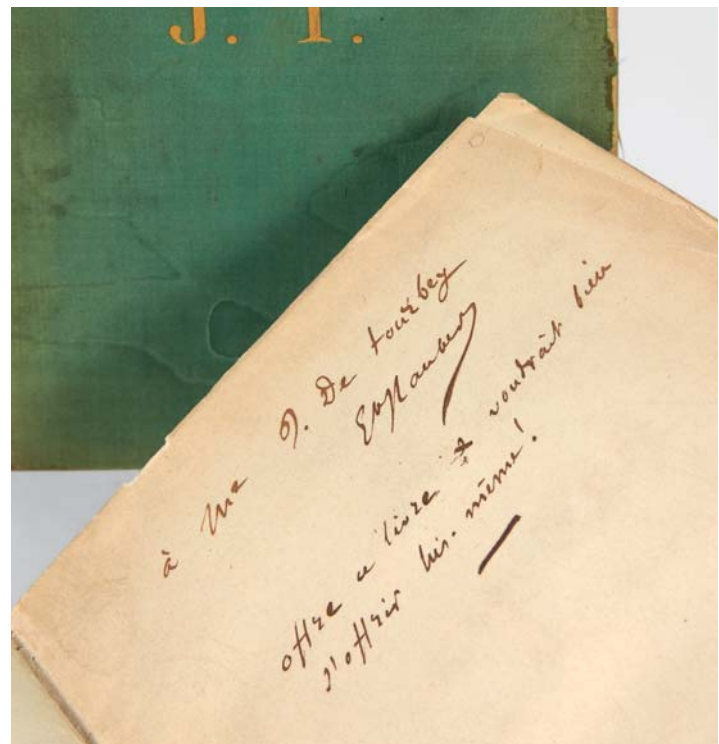 J. T.
à Me J. De tourbey
Gve flaubert
offre ce livre & voudrait bien
s'offrir lui-même!